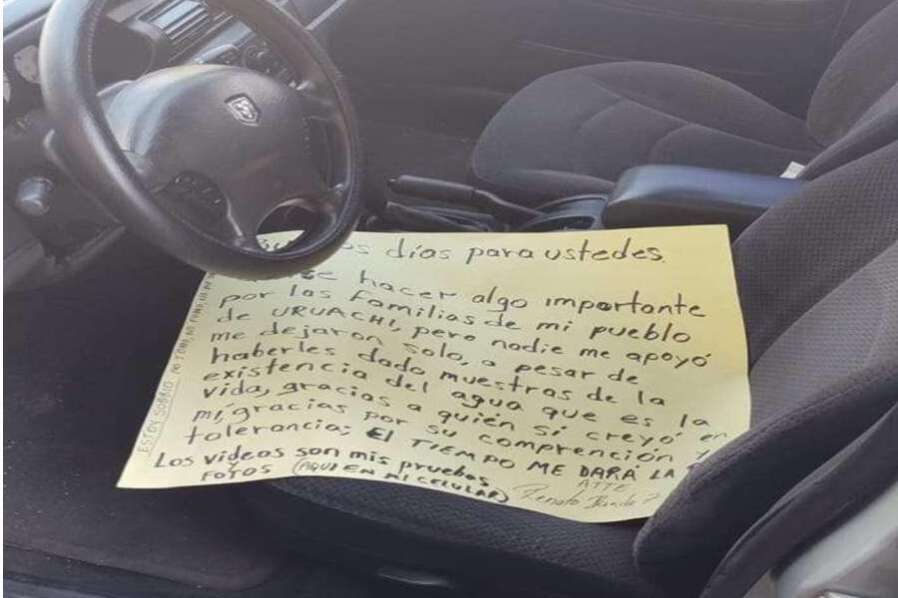 días para ustedes
hacer algo importante
por las familias de mi pueblo
de URUACHI, pero nadie me apoyó
me dejaron solo, a pesar de
haberles dado muestras de la
existencia del agua que es la
vida, gracias a quién si creyó en
mi, gracias por su comprención y
tolerancia; EL TIEMPO ME DARÁ LA
Los videos son mis pruebas
FOTOS (AQUI EN MI CELULAR)
ATTE
Renato
ESTOY SOBRIO NI TOMO NI FUMO